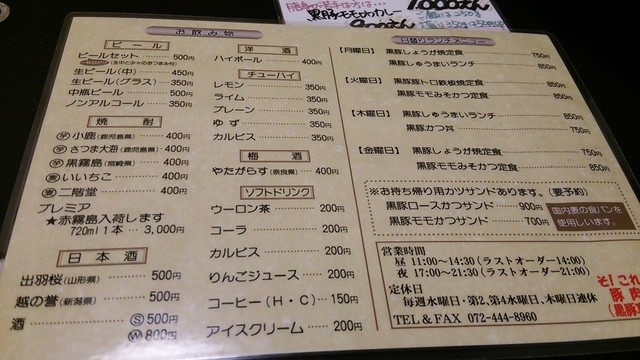 1,000えん
黒豚モモカツカレー
900えん
お飲み物
ビール
ビールセット 500円
生ビール(中) 450円
生ビール(グラス) 350円
中瓶ビール 500円
ノンアルコール 350円
焼酎
小鹿(鹿児島県) 400円
さつま大海(鹿児島県) 400円
黒霧島(宮崎県) 400円
いいちこ 400円
二階堂 400円
プレミア
★赤霧島入荷します
720ml1本…3,000円
日本酒
出羽桜(山形県) 500円
越の誉(新潟県) 500円
酒 Ⓢ500円
Ⓦ800円
洋酒
ハイボール 400円
チューハイ
レモン 350円
ライム 350円
プレーン 350円
ゆず 350円
カルピス 350円
梅酒
やたがらす(奈良県) 400円
ソフトドリンク
ウーロン茶 200円
コーラ 200円
カルピス 200円
りんごジュース 200円
コーヒー(H・C) 150円
アイスクリーム 200円
日替りランチメニュー
【月曜日】 黒豚しょうが焼定食 750円
黒豚しゅうまいランチ 850円
【火曜日】 黒豚豚トロ鉄板焼定食 750円
黒豚モモみそかつ定食 850円
【木曜日】 黒豚しゅうまいランチ 850円
黒豚かつ丼 750円
【金曜日】 黒豚しょうが焼定食 750円
黒豚モモみそかつ定食 850円
※お持ち帰り用カツサンドあります。(要予約)
黒豚ロースカツサンド 900円
黒豚モモカツサンド 700円
国内麦の食パンを
使用しています。
営業時間
昼 11:00〜14:30(ラストオーダー14:00)
夜 17:00〜21:30(ラストオーダー21:00)
定休日
毎週水曜日・第2、第4水曜日、木曜日連休
TEL&FAX 072-444-8960
そ!これ
豚肉
(黒豚